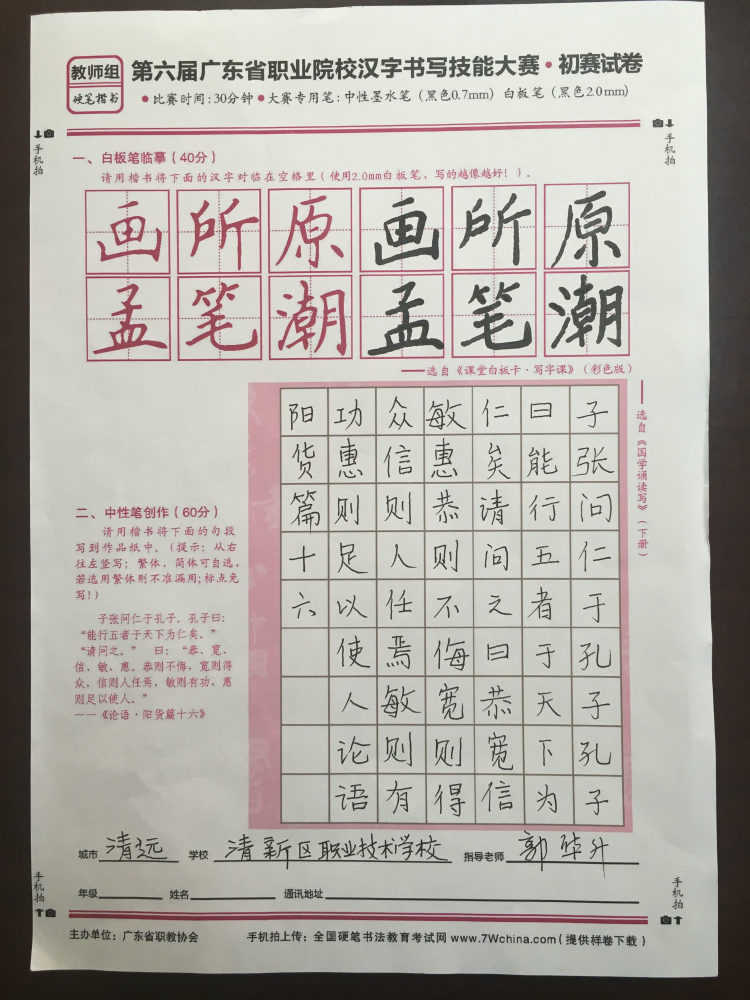 教师组
硬笔楷书
第六届广东省职业院校汉字书写技能大赛·初赛试卷
●比赛时间:30分钟 ●大赛专用笔:中性墨水笔（黑色0.7mm）白板笔（黑色2.0mm）
手机拍
手机拍
一、白板笔临摹（40分）
请用楷书将下面的汉字对临在空格里（使用2.0mm白板笔，写的越像越好！）。
画所原画所原
孟笔潮孟笔潮
——选自《课堂白板卡·写字课》（彩色版）
——选自《国学诵读写》（下册）
子张问仁于孔子孔子
曰能行五者于天下为
仁矣请问之曰恭宽信
敏惠恭则不侮宽则得
众信则人任焉敏则有
功惠则足以使人论语
阳货篇十六
二、中性笔创作（60分）
请用楷书将下面的句段
写到作品纸中。（提示：从右
往左竖写；繁体、简体可自选，
若选用繁体则不准漏用;标点免
写!）
子张问仁于孔子。孔子曰:
“能行五者于天下为仁矣。”
“请问之。” 曰：“恭、宽、
信、敏、惠。恭则不侮，宽则得
众，信则人任焉，敏则有功，惠
则足以使人。”
——《论语·阳货篇十六》
城市 清远 学校 清新区职业技术学校 指导老师 郭华升
年级 姓名 通讯地址
手机拍
手机拍
主办单位：广东省职教协会 手机拍上传：全国硬笔书法教育考试网 www.7Wchina.com（提供样卷下载）